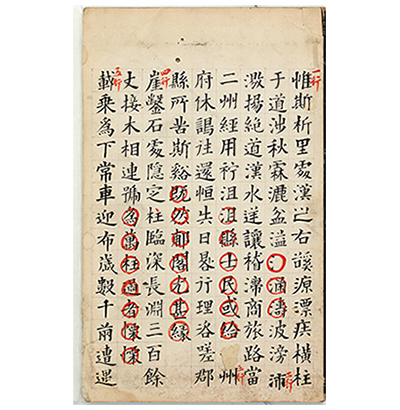 一行
惟斯析里處漢之右谿源漂疾橫柱
于道涉秋霖漉盆溢○涌濤波滂沛
激揚絶道漢水逆讓稽滯商旅路當
二州經用衿沮沮縣士民或給州
府休謁往還恒失日晷行理咨嗟郡
縣所苦斯谿既然郙閣尤甚緣
四行
崖鑿石處隱定柱臨深長淵三百餘
丈接木相連號為萬柱過者慄慄
五行
載乘為下常車迎布歲數千前遭遇